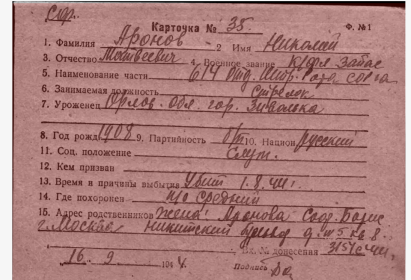 Карточка № 35.
Ф. №1
1. Фамилия Аронов 2. Имя Николай
3. Отчество Матвеевич 4. Военное звание
5. Наименование части 614 отд. Штр. Рота
6. Занимаемая должность стрелок
7. Уроженец Орлов. обл. гор.
8. Год рожд 1908 9. Партийность б/п 10. Национ Русский
11. Соц. положение Служ.
12. Кем призван
13. Время и причины выбытия Убит 1.8.44г.
14. Где похоронен Средний
15. Адрес родственников Жена: Аронова
г. Москва Никитский бульвар д № 5 кв 8.
№ донесения
16. 9 1944.
Подпись